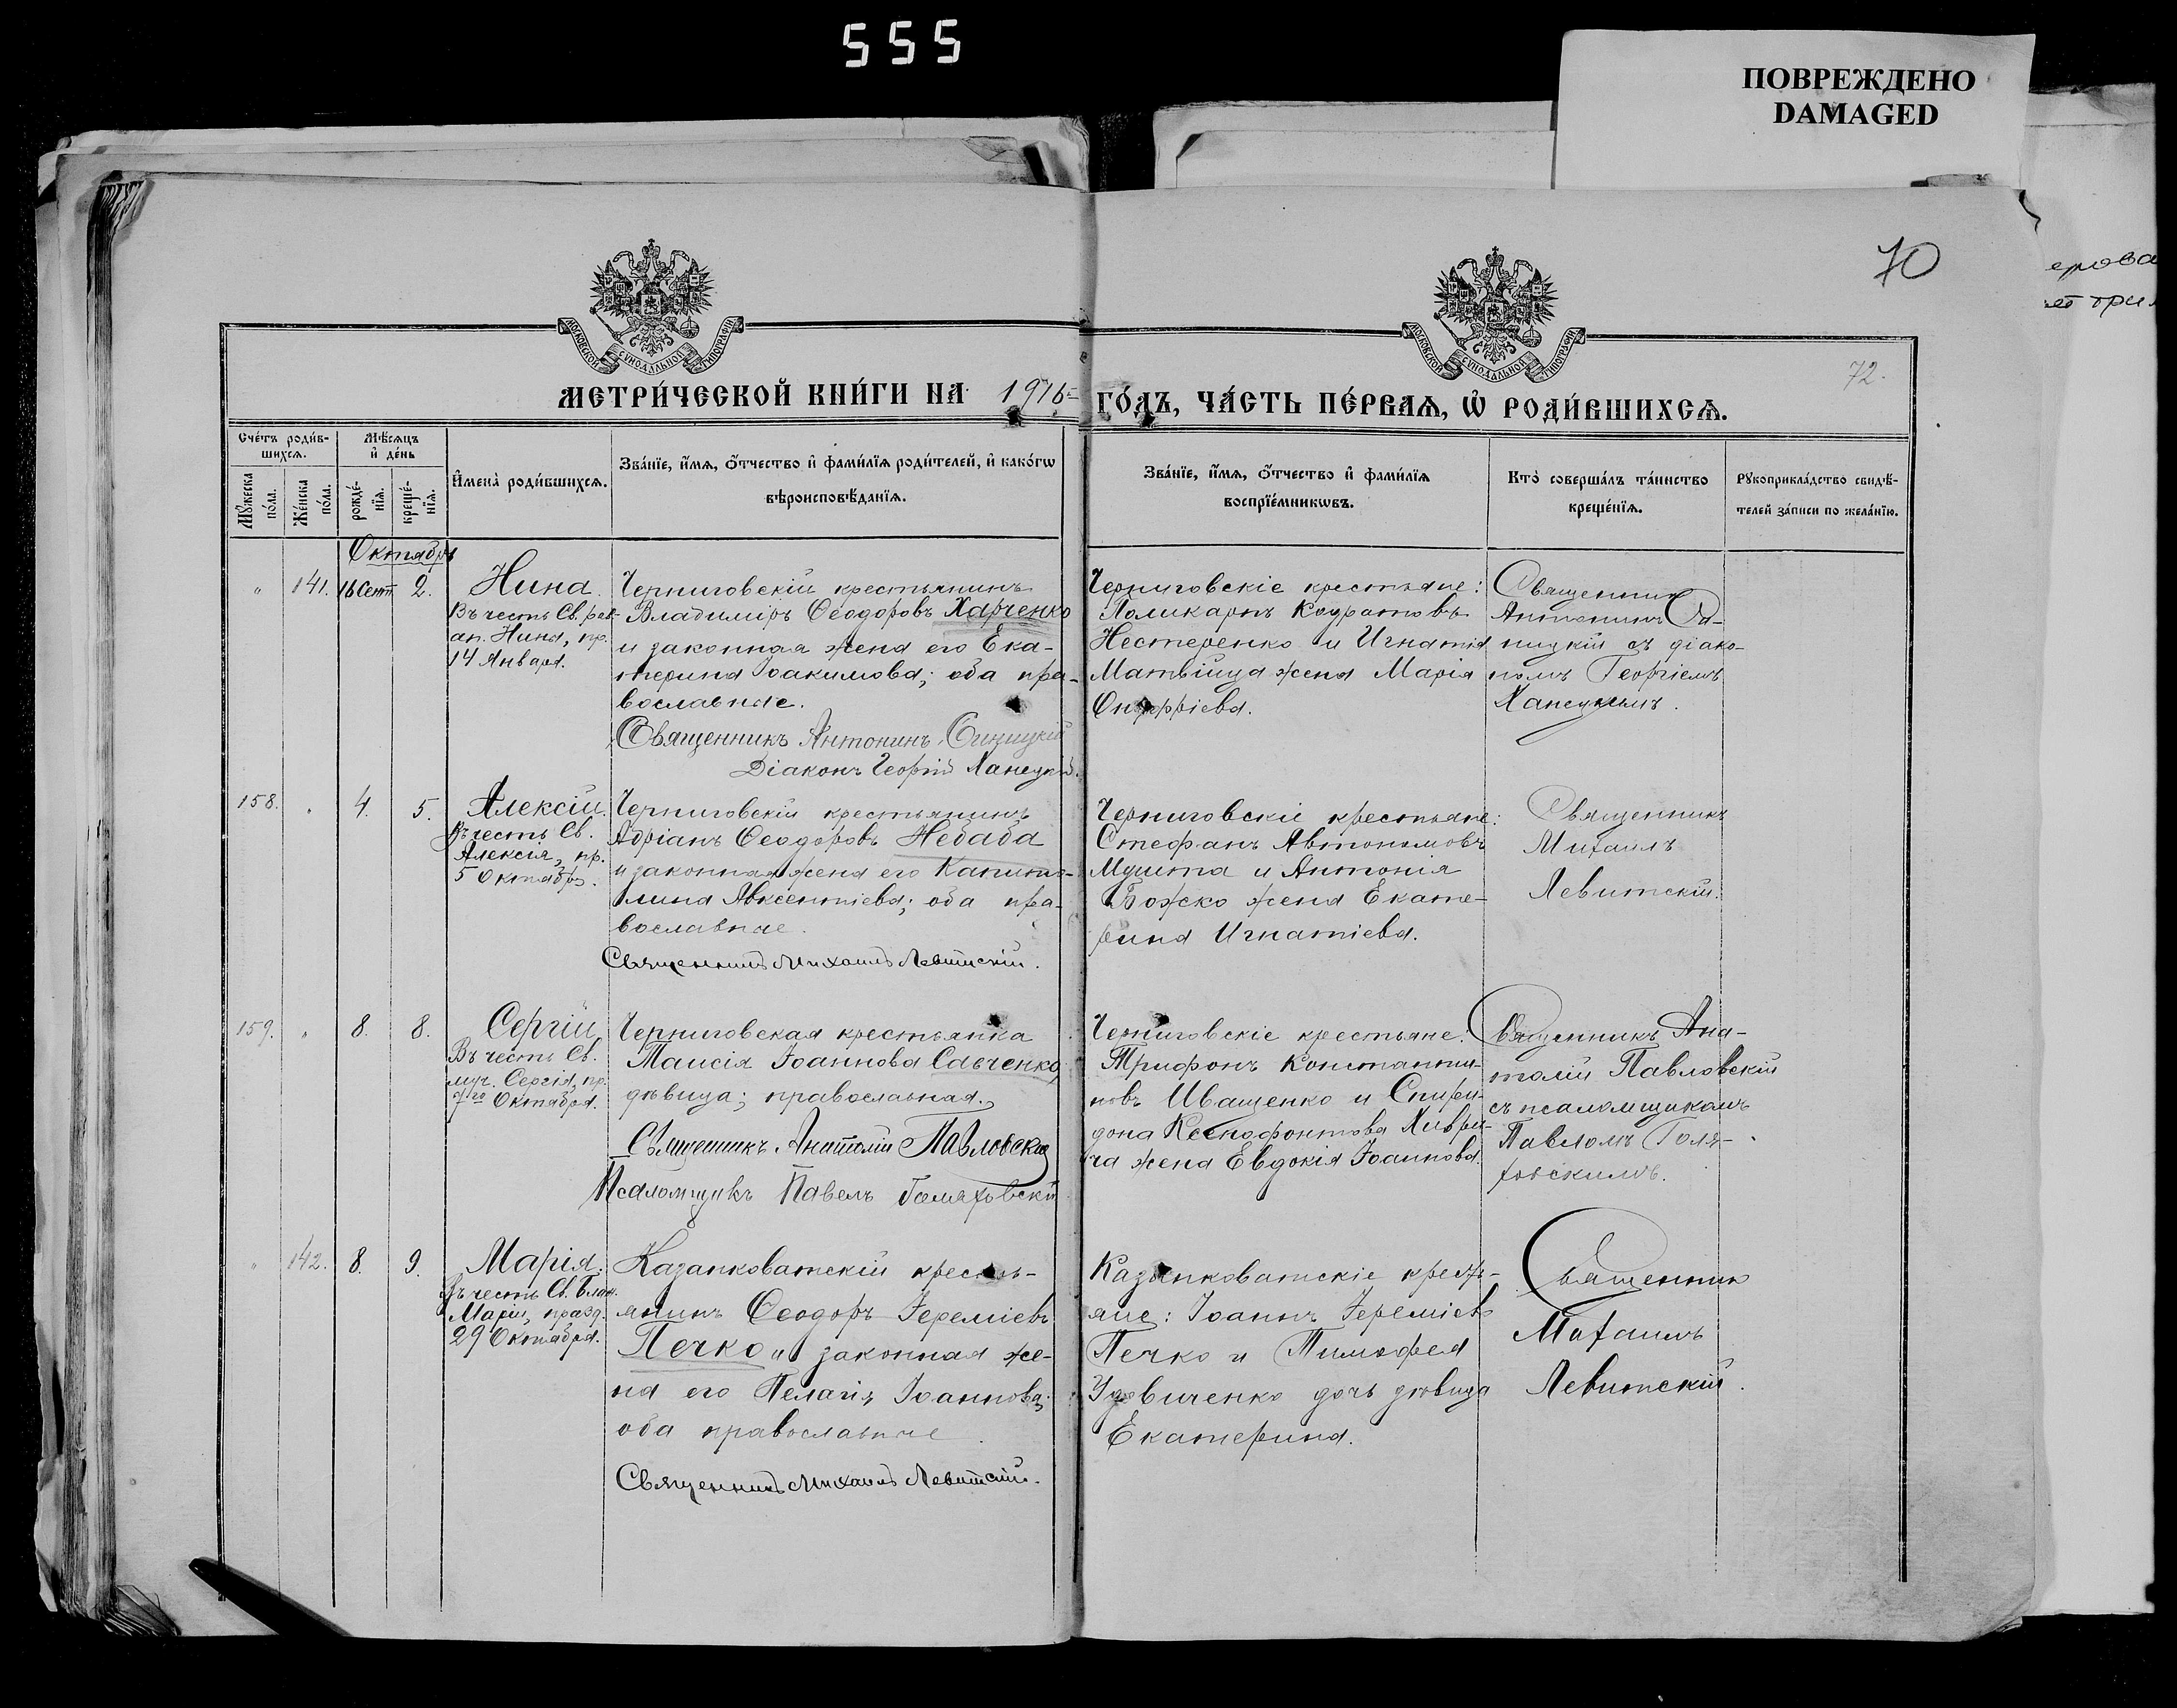 555
ПОВРЕЖДЕНО
DAMAGED
70
72.
МОСКОВСКОЙ СѴНОДАЛЬНОЙ ТИПОГРАФІИ
МОСКОВСКОЙ СѴНОДАЛЬНОЙ ТИПОГРАФІИ
МЕТРИ́ЧЕСКОЙ КНИ́ГИ НА 1916 ГО́ДЪ, ЧА́СТЬ ПЕ́РВАѦ, Ѡ҆ РОДИ́ВШИХСѦ.
Сче́тъ роди́в-
шихсѧ.
Мꙋ́жеска по́ла.
Же́нска по́ла.
Мѣ́сѧцъ
и҆ де́нь
рожде́-
нїѧ.
креще́-
нїѧ.
И҆мена̀ роди́вшихсѧ.
Зва́нїе, и҆́мѧ, ѻ҆́тчество и҆ фами́лїѧ роди́телей, и҆ како́гѡ
вѣроисповѣ́данїѧ.
Зва́нїе, и҆́мѧ, ѻ҆́тчество и҆ фами́лїѧ
воспрїе́мникѡвъ.
Кто̀ соверша́лъ та́инство
креще́нїѧ.
Рꙋкоприкла́дство свидѣ́-
телей за́писи по жела́нїю.
Октябрь
" 141. 16 Сент 2.
Нина
Въ честь Св. рав-
ап. Нины, пр.
14 Января.
Черниговскій крестьянинъ
Владиміръ Ѳеодоровъ Харченко
и законная жена его Ека-
терина Іоакимова; оба пра-
вославные.
Священникъ Антонинъ Синицкій
Діаконъ Георгій Ханецкій.
Черниговскіе крестьяне:
Поликарпъ Кодратовъ
Нестеренко и Игнатія
Матвійца жена Марія
Онуфріева.
Священникъ
Антонинъ Си-
ницкій съ діако-
номъ Георгіемъ
Ханецкимъ.
158. " 4. 5.
Алексій.
Въ честь Св.
Алексія, пр.
5 Октября.
Черниговскій крестьянинъ
Адріанъ Ѳеодоровъ Небаба
и законная жена его Капито-
лина Авксентіева; оба пра-
вославные.
Священникъ Михаилъ Левитскій.
Черниговскіе крестьяне:
Стефанъ Автономовъ
Мушта и Антонія
Божко жена Екате-
рина Игнатіева.
Священникъ
Михаилъ
Левитскій.
159. " 8. 8.
Сергій
Въ честь Св.
муч. Сергія, пр.
7го Октября.
Черниговская крестьянка
Таисія Іоаннова Савченко
дѣвица; православная.
Священникъ Анатолій Павловскій
Псаломщикъ Павелъ Голяховскій
Черниговскіе крестьяне:
Трифонъ Константи-
новъ Иващенко и Спири-
дона Ксенофонтова Хиври-
ча жена Евдокія Іоаннова.
Священникъ Ана-
толій Павловскій
съ псаломщикомъ
Павломъ Голя-
ховскимъ.
" 142. 8. 9.
Марія.
Въ честь Св. Блаж.
Маріи, празд.
29 Октября.
Казанковатскій кресть-
янинъ Ѳеодоръ Іереміевъ
Печко и законная же-
на его Пелагія Іоаннова;
оба православные
Священникъ Михаилъ Левитскій.
Казанковатскіе кресть-
яне: Іоаннъ Іереміевъ
Печко и Тимофея
Удовиченко дочь дѣвица
Екатерина.
Священникъ
Михаилъ
Левитскій.